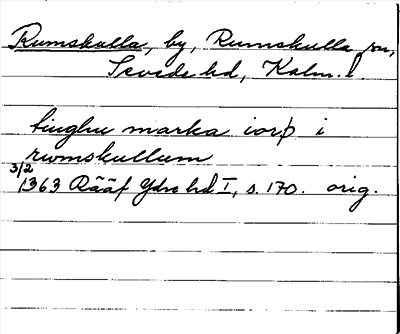 Rumskulla, by, Rumskulla sn,
Sevede hd, Kalm. l
tiughu marka iorþ i
rumskullum
3/2
1363 Rääf Ydre hd I, s. 170. orig.